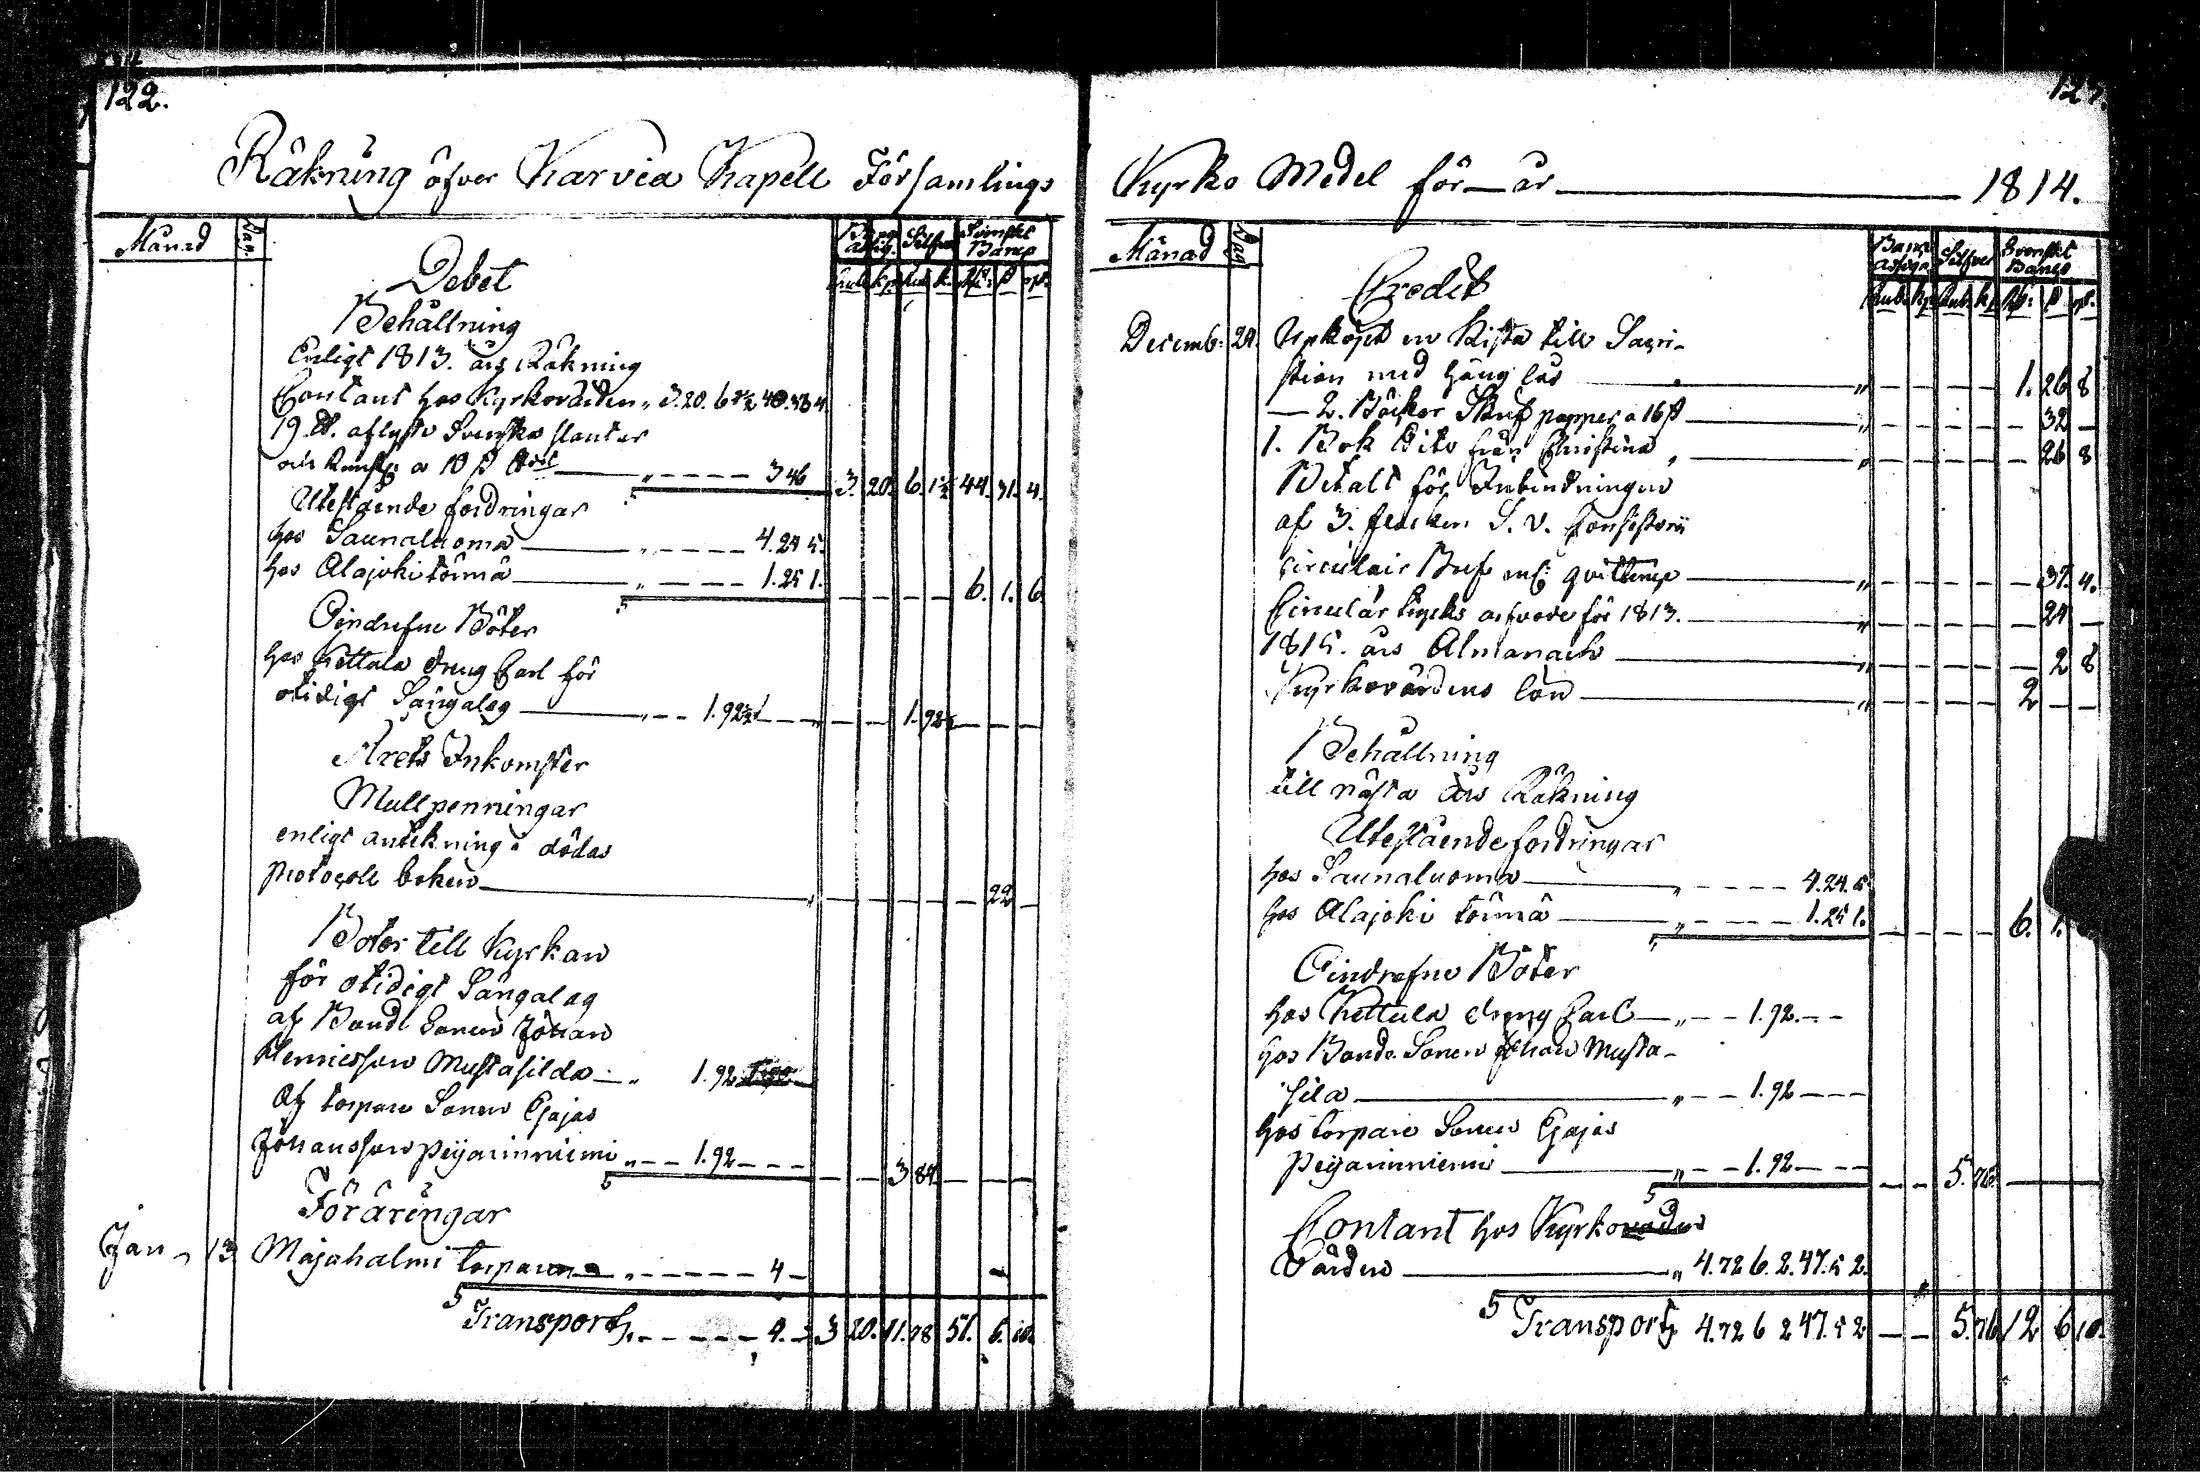 122.
Räkning öfver Karvia Kapell Församlings
Månad Dag.
Debet
Banco Assig. Silfver Svenskt Banco
Rub. k. Rub. k. Rd: ß rst.
Behållning
Enligt 1813. års Räkning
Contant hos Kyrkovärden „ 3.20. 6
19. aflyste Svenska slantar
346
3. 20. 6. 1½ 44. 31. 4.
Utestående fordringar
hos Saunaluoma „ 4.24 5.
hos Alajoki törmä „ 1.25 1.
6. 1. 6.
Oindrefne Böter
hos Kettula dreng Carl för
otidigt Sängalag „ 1.92½
1.92½
Årets Inkomster
Mullpenningar
enligt antekning i dödas
Protocoll boken 22
Böter till Kyrkan
för otidigt Sängalag
af Bonde Sonen Johan
Henricsson Mustasilda „ 1.92
Af torpare Sonen Esajas
Johansson Peijarinniemi „ 1.92
3 84
Föräringar
Jan 13 Majahalmi torpare „ 4
Transport 4. 3 20. 11.78 51. 6. 10.
Kyrko Medel för år 1814.
Månad Dag
Credit
Banco Assigna Silfver Svenskt Banco
Rub. k. Rub. k. Rd: ß rst.
Decemb: 24. Upköpt en Kista till Sacri-
stian med häng lås „ 1. 26 8
2. Böcker Skrif papper a 16 ß „ 32
1. Bok Dito från Christina „ 26 8
Betalt för Inbindningen
af 3. stycken S. V. Consistorii
Circulair Bref enl: qvittence „ 37. 4.
Circulär trycks arfvode för 1813. „ 24
1815. års Almanach „ 2 8
Kyrkovärdens lön „ 2
Behållning
till nästa års Räkning
Utestående fordringar
hos Saunaluoma „ 4.24. 5
hos Alajoki törmä „ 1.25 1.
6. 1.
Oindrefne Böter
hos Kettula dreng Carl „ 1.92
hos Bonde Sonen Johan Musta-
sila „ 1.92
hos torpare Sonen Esajas
Peijarinniemi „ 1.92
5. 76.
Contant hos Kyrko
Värden „ 4.72 6. 2. 47. 5 2.
Transport 4.72 6 2 47. 5 2 5. 76 12 6 10.